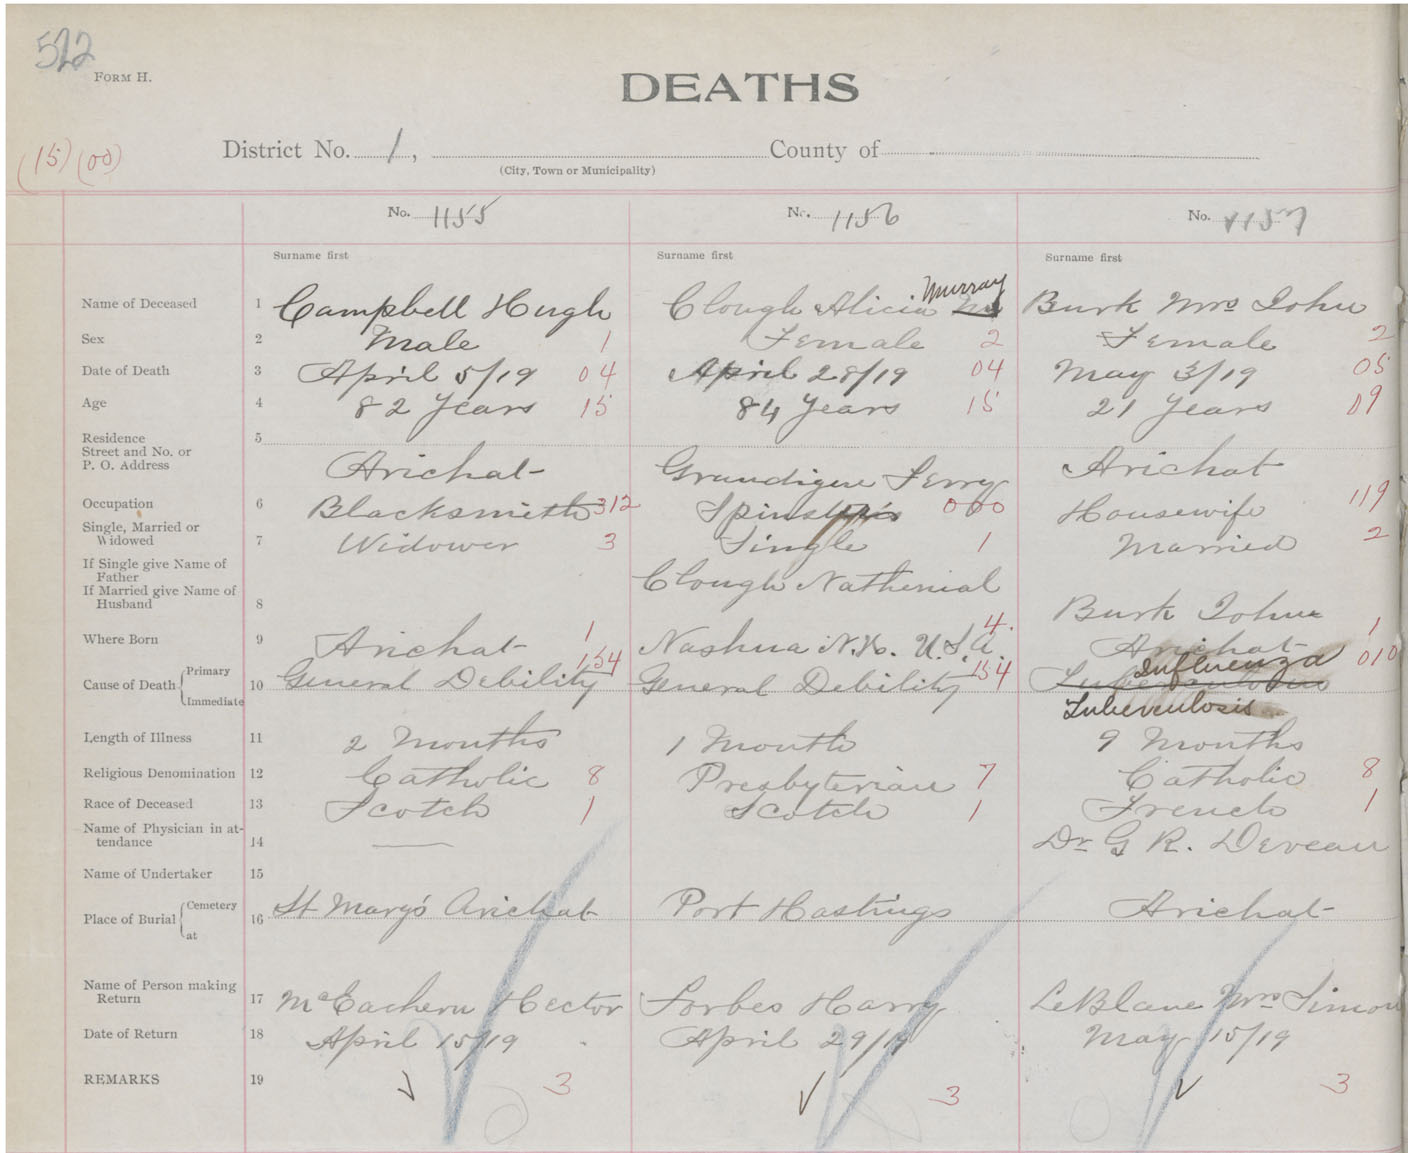 522
FORM H.
DEATHS
(15) (00)
District No. 1, County of
(City, Town or Municipality)
No. 1155 No. 1156 No. 1157
Surname first Surname first Surname first
Name of Deceased 1 Campbell Hugh Clough Alicia Murray Burk Mrs John
Sex 2 Male 1 Female 2 Female 2
Date of Death 3 April 5/19 04 April 28/19 04 May 3/19 05
Age 4 82 Years 15 84 Years 15 21 Years 09
Residence 5
Street and No. or
P. O. Address Arichat Grandigue Ferry Arichat
Occupation 6 Blacksmith 312 Spinster 000 Housewife 119
Single, Married or
Widowed 7 Widower 3 Single 1 Married 2
If Single give Name of
Father Clough Nathenial
If Married give Name of
Husband 8 Burk John
Where Born 9 Arichat 1 Nashua N.H. U.S.A. 4 Arichat 1
Cause of Death Primary 10 General Debility 154 General Debility 154 Tuberculosis Influenza 010
Immediate Tuberculosis
Length of Illness 11 2 Months 1 Month 9 Months
Religious Denomination 12 Catholic 8 Presbyterian 7 Catholic 8
Race of Deceased 13 Scotch 1 Scotch 1 French 1
Name of Physician in at-
tendance 14 — Dr G R. Deveau
Name of Undertaker 15
Place of Burial Cemetery 16 St Mary's Arichat Port Hastings Arichat
at
Name of Person making
Return 17 McEachern Hector Forbes Harry LeBlanc Mrs Simon
Date of Return 18 April 15/19 April 29/19 May 15/19
REMARKS 19 3 3 3